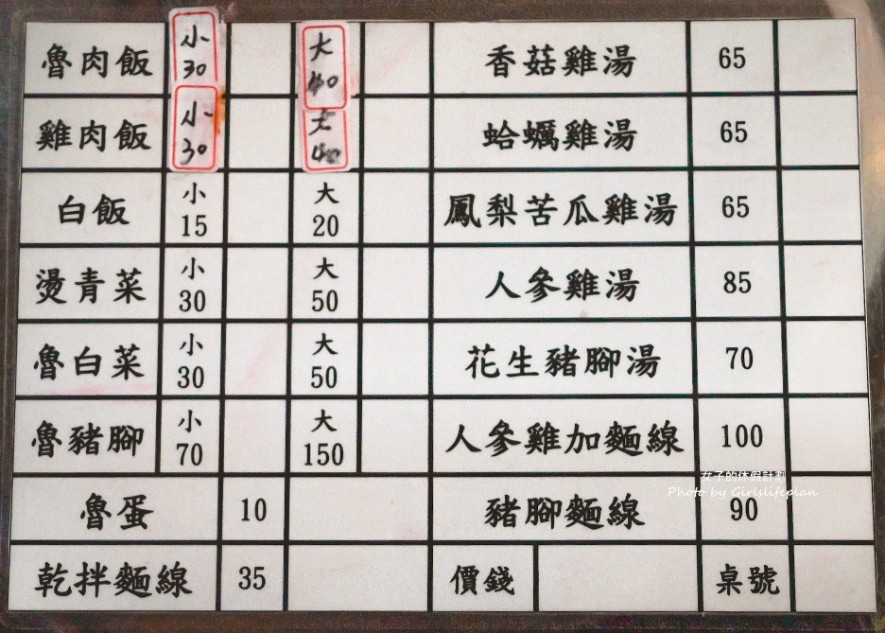 魯肉飯 小 30 大 40 香菇雞湯 65
雞肉飯 小 30 大 40 蛤蠣雞湯 65
白飯 小 15 大 20 鳳梨苦瓜雞湯 65
燙青菜 小 30 大 50 人參雞湯 85
魯白菜 小 30 大 50 花生豬腳湯 70
魯豬腳 小 70 大 150 人參雞加麵線 100
女子的休假計劃
Photo by Girlslifeplan
魯蛋 10 豬腳麵線 90
乾拌麵線 35 價錢 桌號